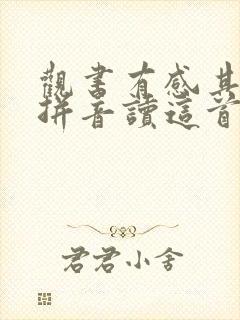 觀書有感其
拼音讀這首
君君小舍